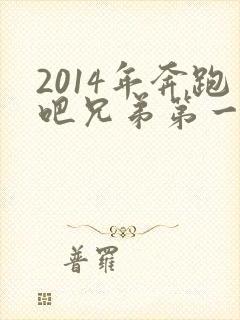 2014年奔跑
吧兄弟第一
普羅